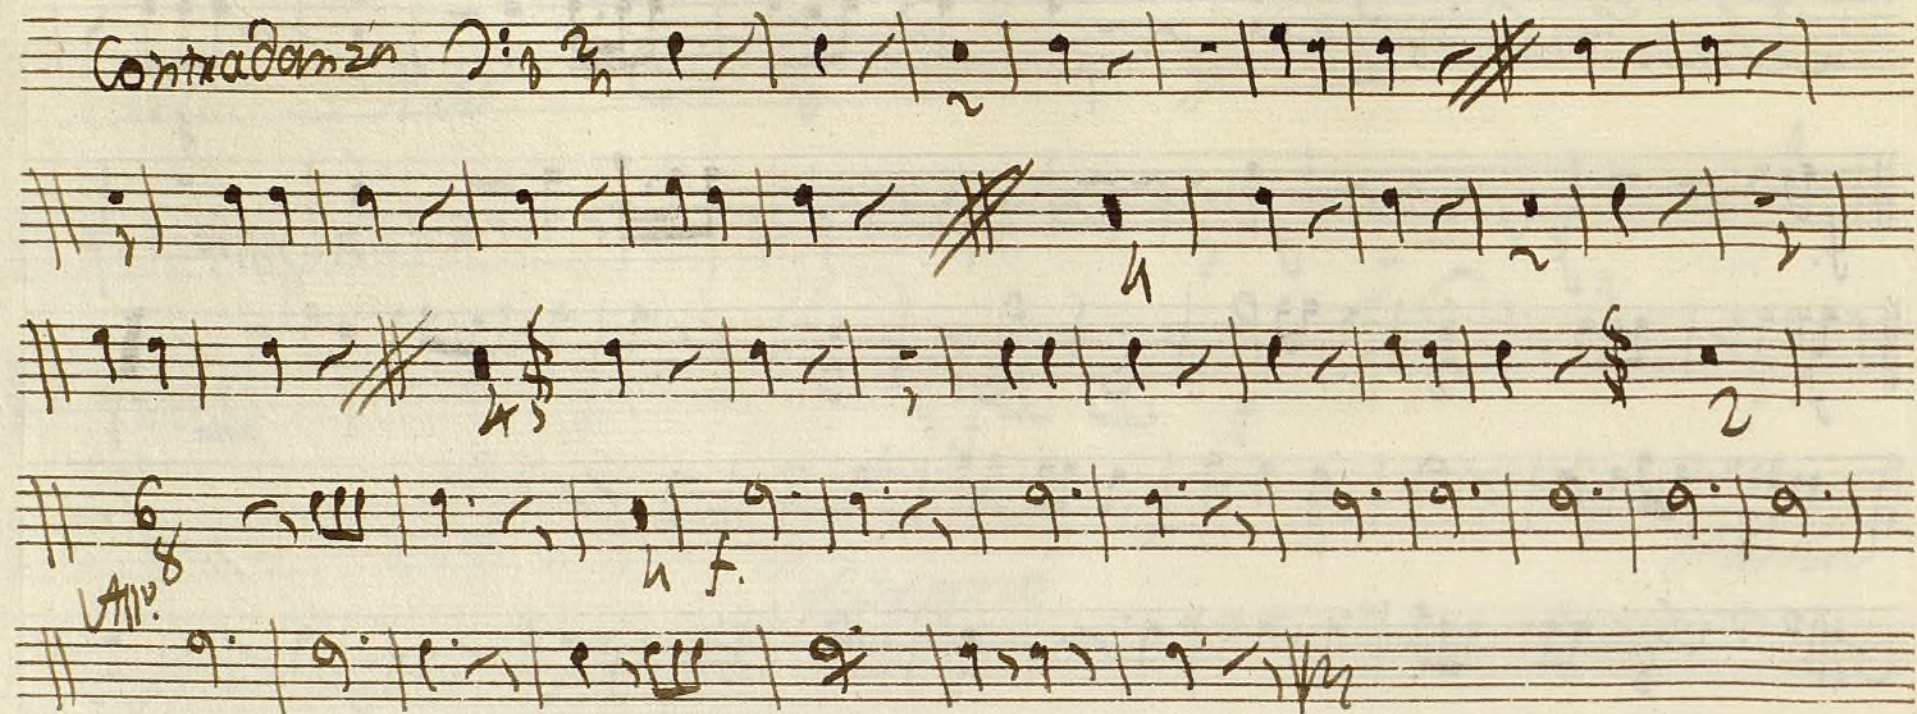 Contradanza 2 4 2
4 2
4 2
6 8 4 f.
All.º